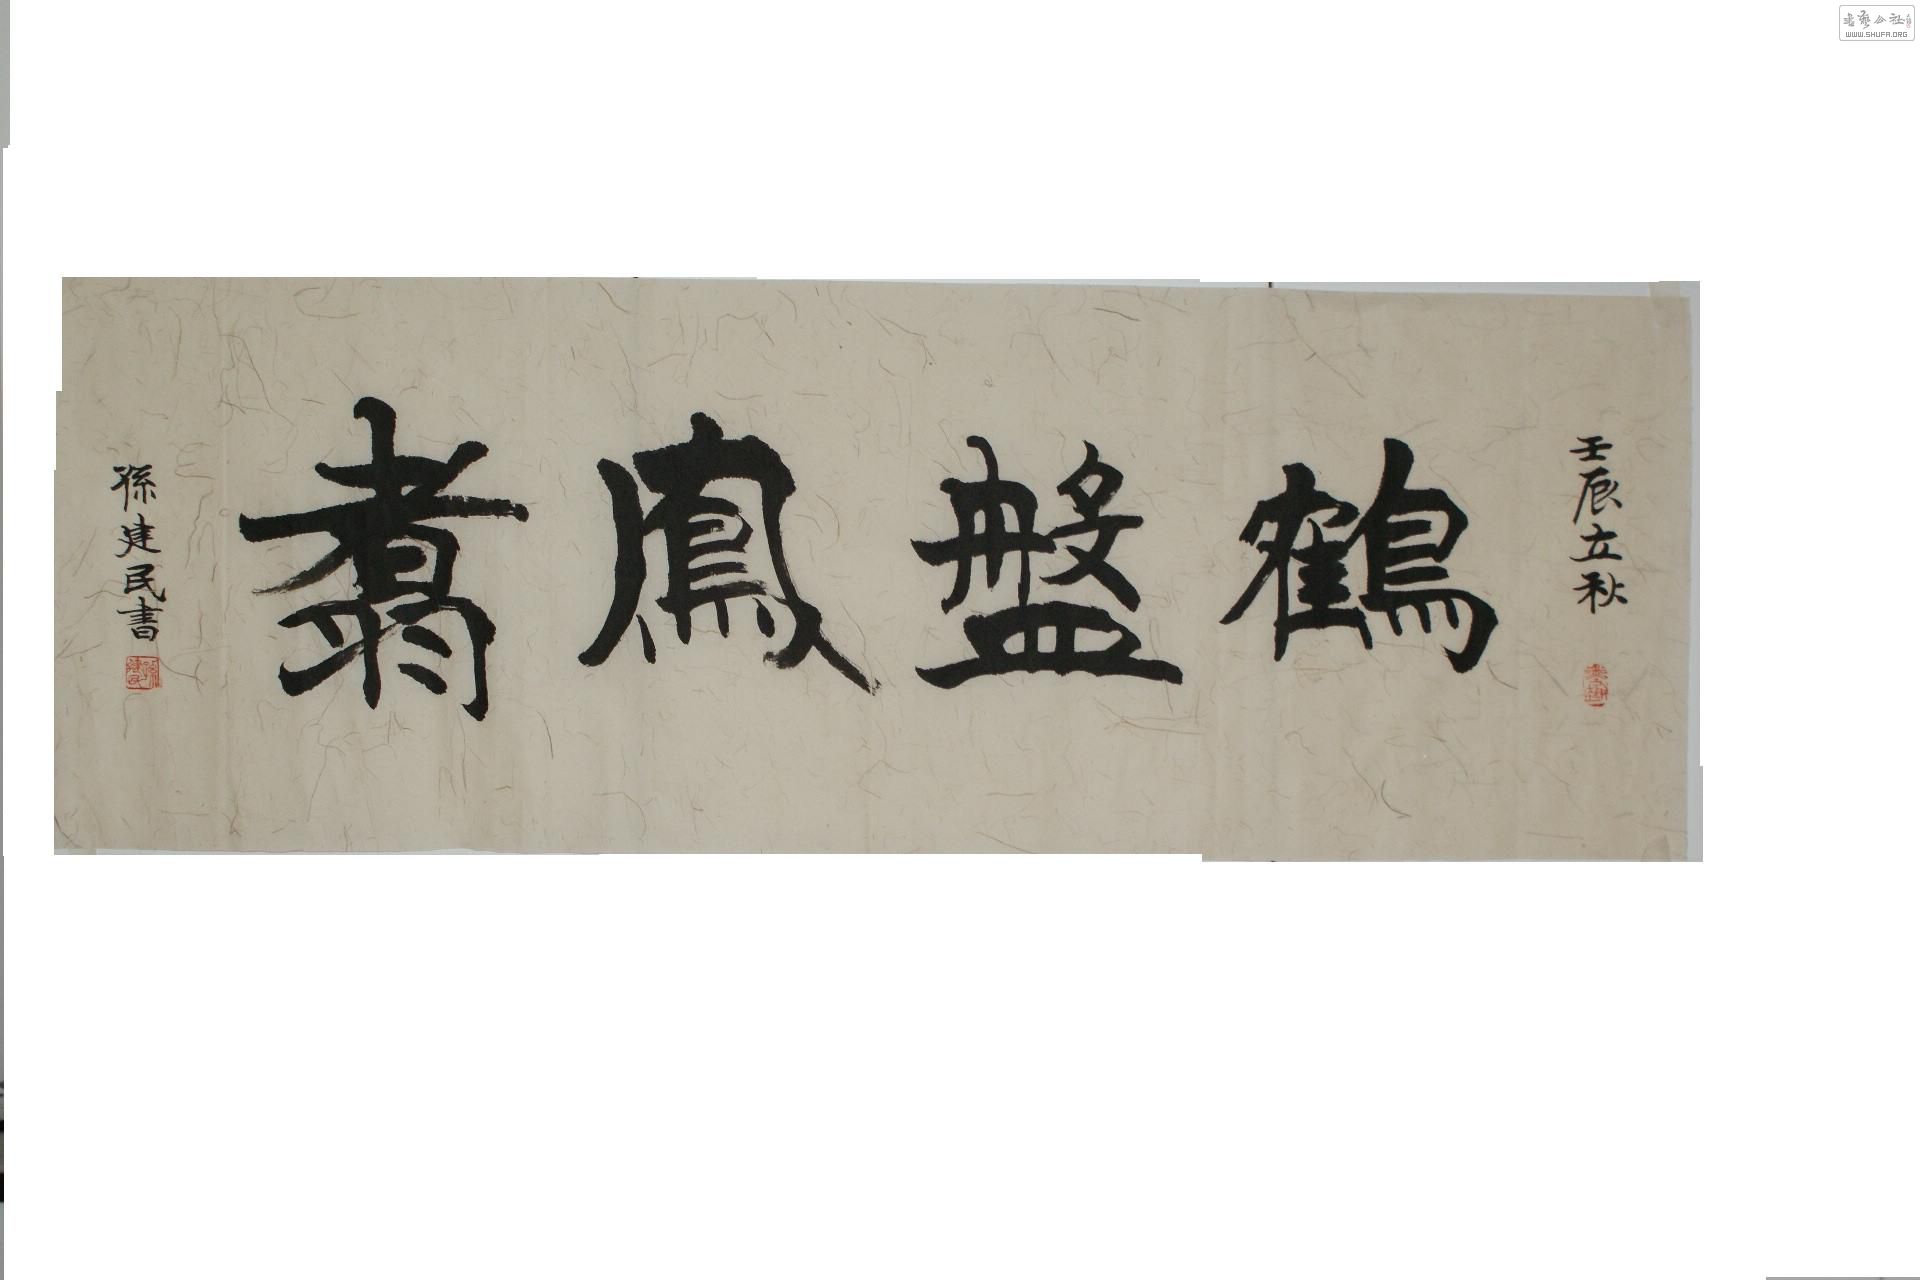 壬辰立秋
鶴盤鳳翥
孫建民書
書藝公社
WWW.SHUFA.ORG